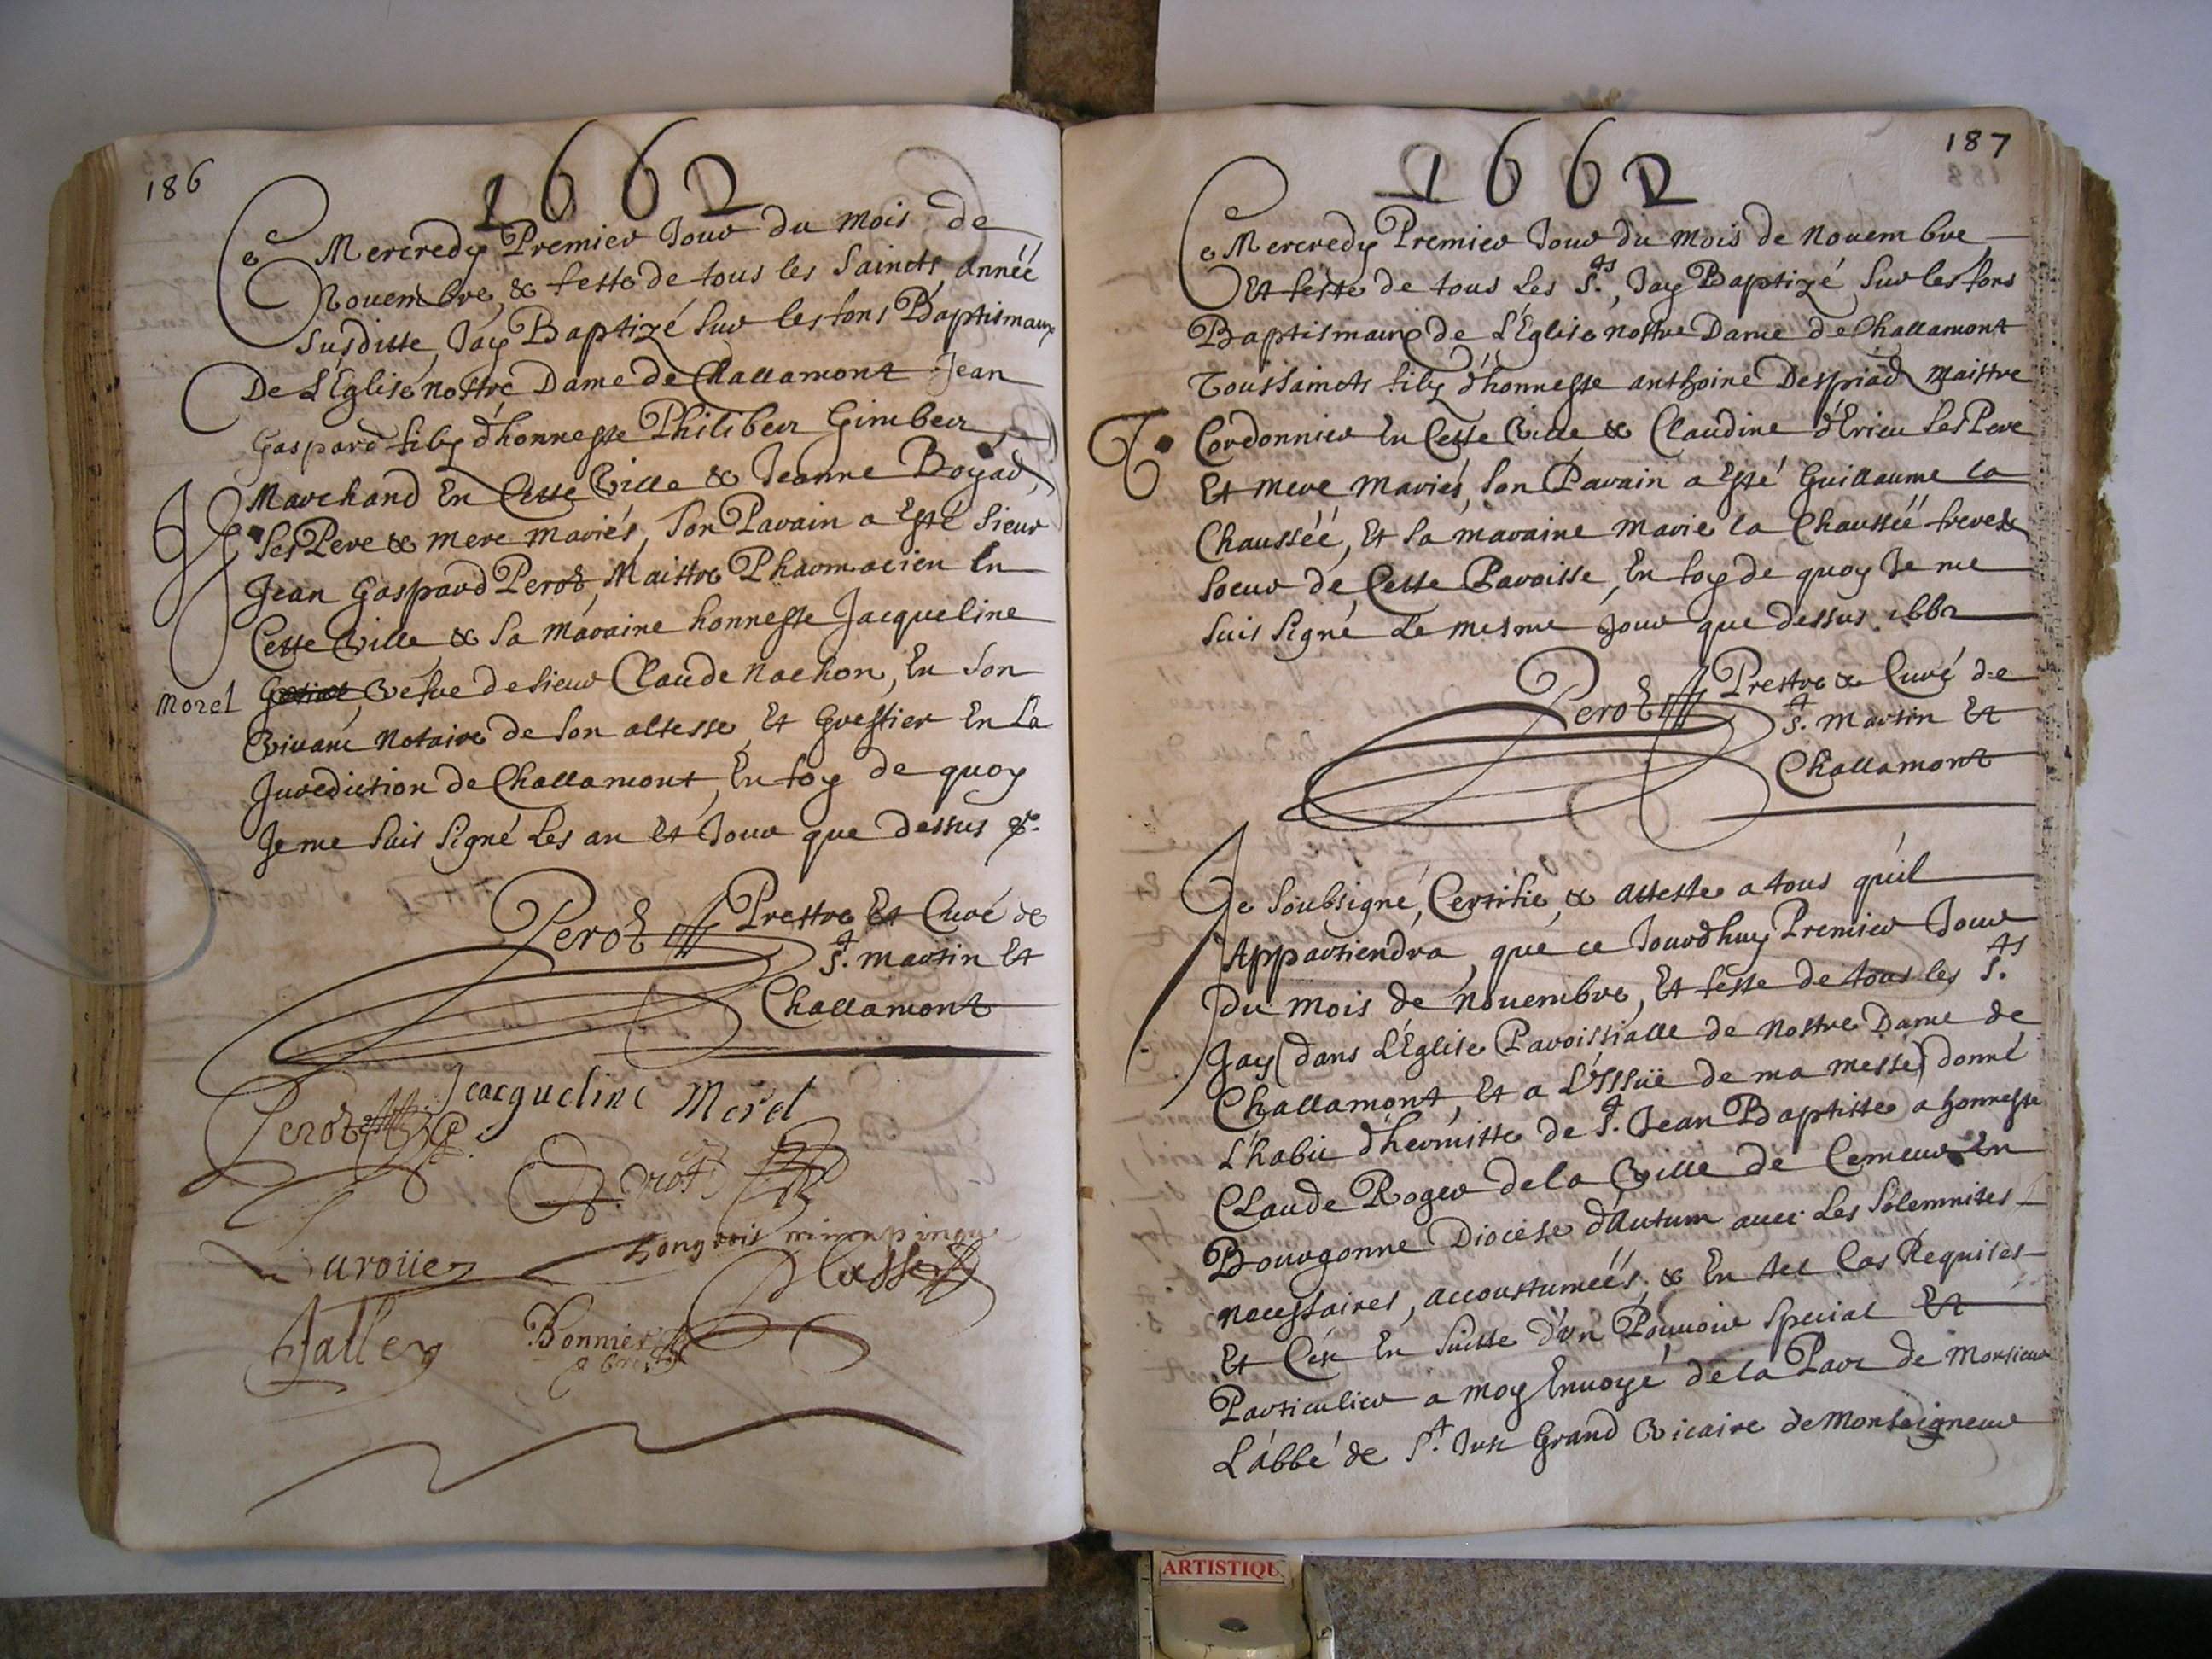 186
1662
Ce Mercredy Premier Jour du mois de
Nouembre, & feste de tous les Saincts, année
Susditte, Jay Baptizé sur les fons Baptismaux
De L'Eglise nostre Dame de Challamont Jean
Gaspard filz d'honneste Philibert Gimbert
Marchand En Cette Ville & Jeanne Boyad,
Ses Pere & mere mariés, Son Parain a Esté Sieur
Jean Gaspard Perot, Maistre Pharmacien En
Cette Ville & Sa maraine honneste Jacqueline
Morel
Vefue de Sieur Claude Nachon, En Son
Viuant Notaire de Son altesse, Et Greffier En La
Jurediction de Challamont, En foy de quoy
Je me Suis Signé Les an Et Jour que dessus &c.
Perot Prestre Et Curé de
St. martin Et
Challamont
Perot
Jeacqueline Morel
Perot
Hongrois
Jalley
Bonnier
187
1662
Ce Mercredy Premier Jour du mois de nouembre
Et feste de tous Les Sts, Jay Baptizé Sur les fons
Baptismaux de L'Eglise nostre Dame de Challamont
Toussaincts filz d'honneste anthoine Despiad maistre
Cordonnier En Cette Ville & Claudine d'Erieu Ses Pere
Et mere mariés, Son Parain a Esté Guillaume la
Chaussée, Et Sa maraine marie la Chaussée frere &
Soeur de Cette Paroisse, En foy de quoy Je me
Suis Signé Le mesme Jour que dessus 1662
Perot Prestre & Curé de
St. martin Et
Challamont
Je Soubsigné, Certifie, & atteste a tous qu'il
Appartiendra, que ce Jourdhuy Premier Jour
Du mois de nouembre, Et feste de tous les Sts.
Jay (dans L'Eglise Paroissialle de Nostre Dame de
Challamont, Et a L'Issüe de ma messe) donné
L'habit d'hermitte de St. Jean Baptiste a honneste
CLaude Roger de la Ville de Cemeur En
Bourgonne Diocese d'Autum auec Les Solemnites
necessaires, accoustumées, & En tel Cas Requises
Et C'est En Suitte d'vn Pouuoir Special Et
Particulier a moy Enuoyé de la Part de Monsieur
L'abbé de St. Just Grand Vicaire de Monseigneur
ARTISTIQU